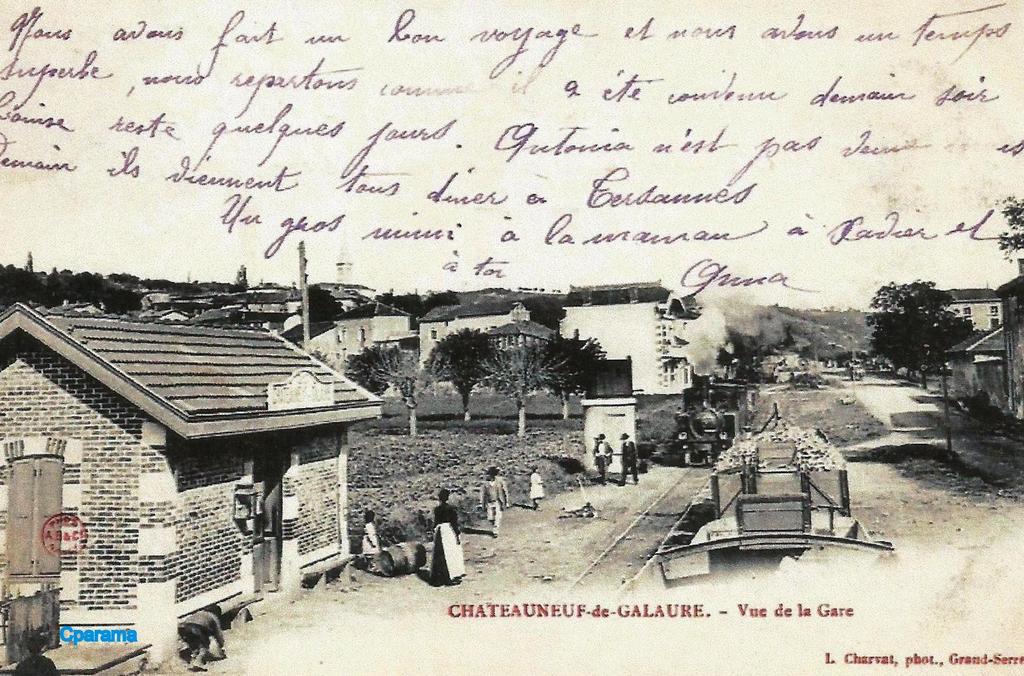 Nous avons fait un bon voyage et nous avons un temps
superbe, nous repartons comme il a été convenu demain soir
Louise reste quelques jours. Antonia n'est pas
Demain ils viennent tous diner a Tersannes
Un gros mimi à la maman à et
à toi Anna
CHATEAUNEUF-de-GALAURE. - Vue de la Gare
L. Charvat, phot., Grand-Serre
Cparama